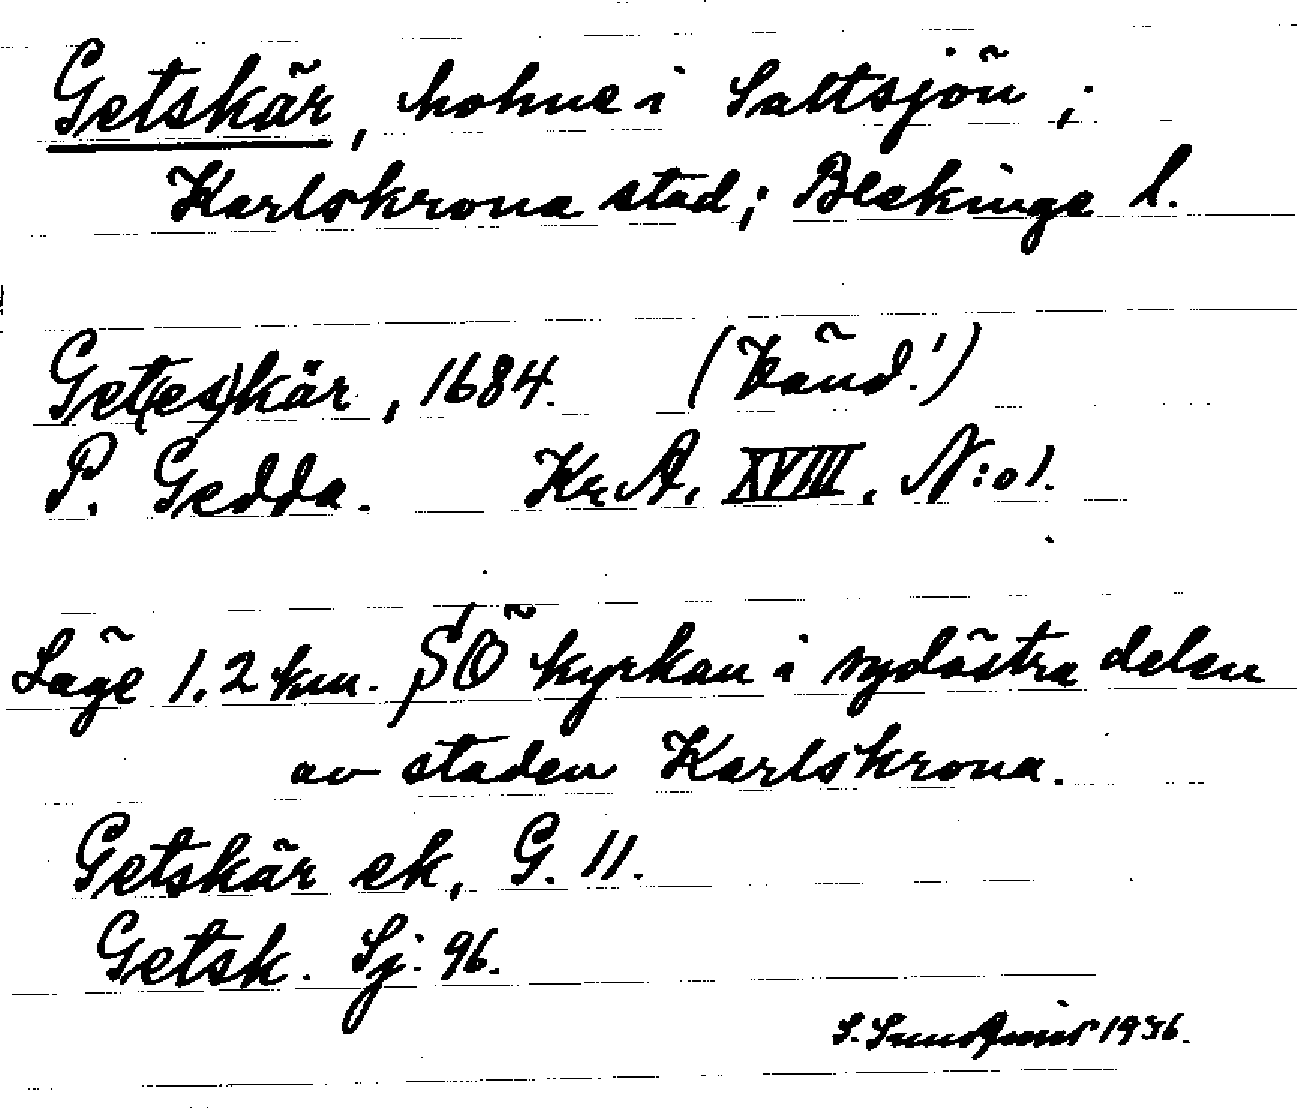 Getskär, holme i Saltsjön;
Karlskrona stad; Blekinge l.
Get(es)kär, 1684. (Vänd!)
P. Gedda. Kr. A. XVIII. N:o 1.
Läge 1.2 km. SÖ kyrkan i sydöstra delen
av staden Karlskrona.
Getskär ek, G. 11.
Getsk. Sj: 96.
S. 1936.